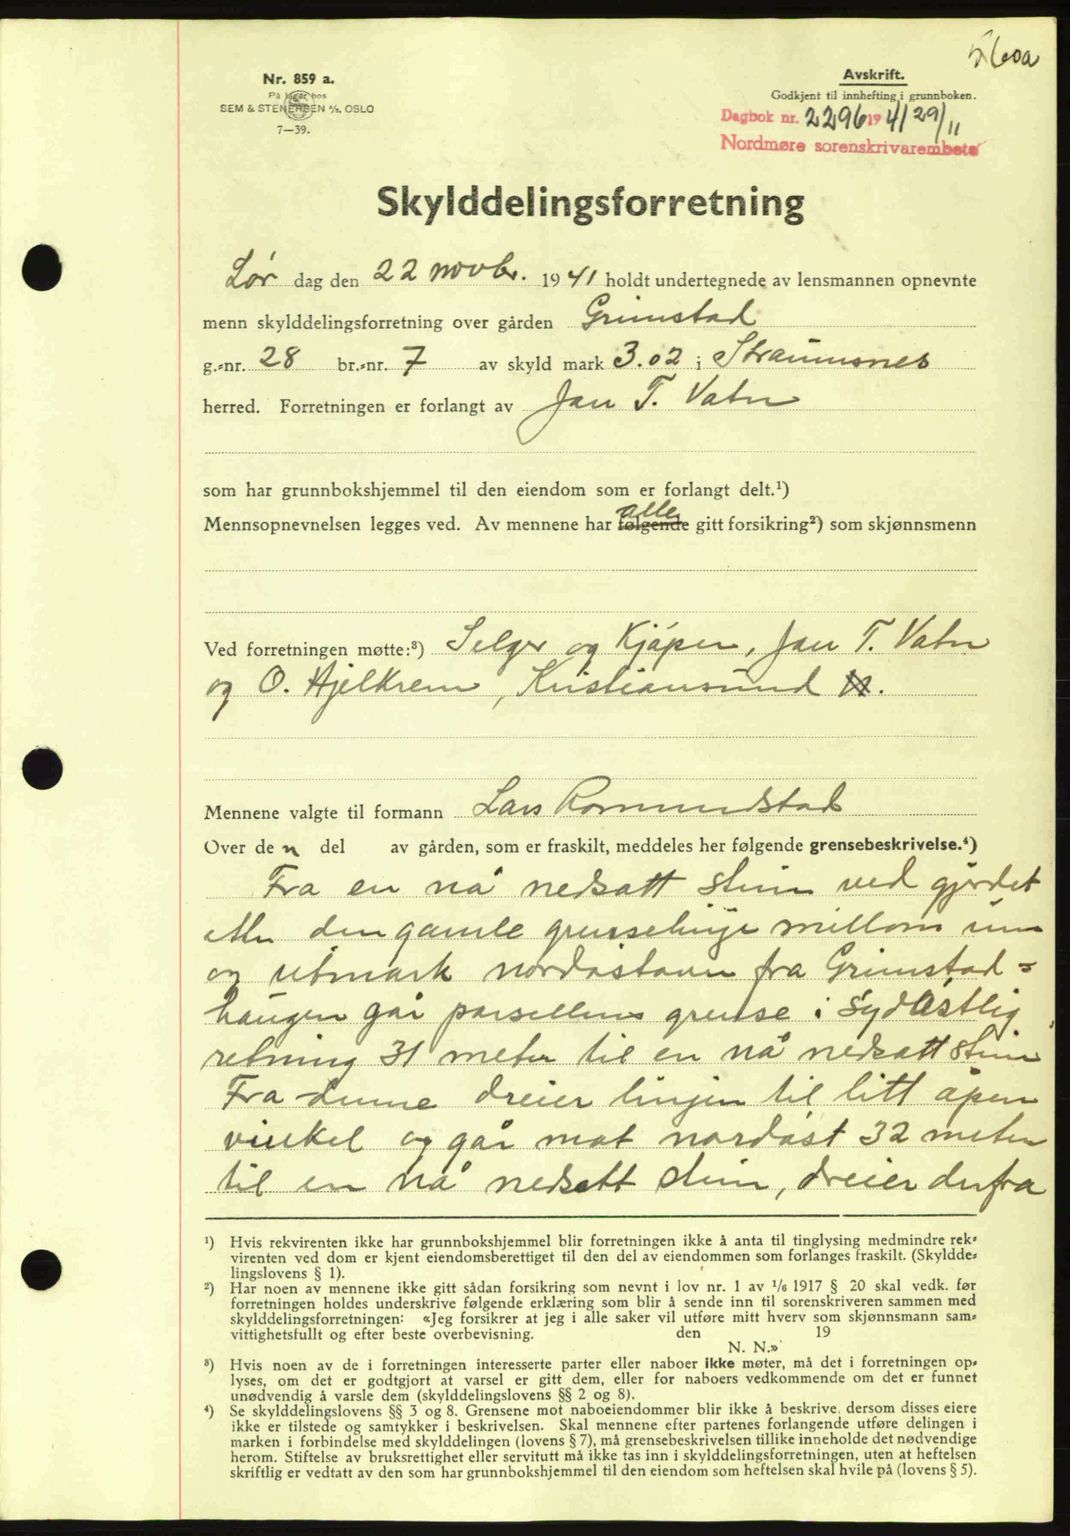 5600a
Nr. 859 a.
På lager hos
SEM & STENERSEN A/S. OSLO
7—39.
Avskrift.
Godkjent til innhefting i grunnboken.
Dagbok nr. 2296 1941 29/11
Nordmøre sorenskrivarembete
Skylddelingsforretning
Lør dag den 22 novbr. 1941 holdt undertegnede av lensmannen opnevnte
menn skylddelingsforretning over gården Grimstad
g.-nr. 28 br.-nr. 7 av skyld mark 3.02 i Straumsnes
herred. Forretningen er forlangt av Jan T. Vatn
som har grunnbokshjemmel til den eiendom som er forlangt delt.¹)
Mennsopnevnelsen legges ved. Av mennene har følgende alle gitt forsikring²) som skjønnsmenn
Ved forretningen møtte:³) Selger og Kjøper, Jan T. Vatn
og O. Hjelkrem, Kristiansund N.
Mennene valgte til formann Lars Romundstad
Over de n del av gården, som er fraskilt, meddeles her følgende grensebeskrivelse.⁴)
Fra en nå nedsatt stein ved gjerdet
etter den gamle grenselinje millom inn
og utmark nordøstover fra Grimstad-
haugen går parsellens grense i sydøstlig
retning 31 meter til en nå nedsatt stein
Fra denne dreier linjen til litt åpen
vinkel og går mot nordøst 32 meter
til en nå nedsatt stein, dreier derfra
¹) Hvis rekvirenten ikke har grunnbokshjemmel blir forretningen ikke å anta til tinglysing medmindre rek-
virenten ved dom er kjent eiendomsberettiget til den del av eiendommen som forlanges fraskilt. (Skyldde-
lingslovens § 1).
²) Har noen av mennene ikke gitt sådan forsikring som nevnt i lov nr. 1 av 1/6 1917 § 20 skal vedk. før
forretningen holdes underskrive følgende erklæring som blir å sende inn til sorenskriveren sammen med
skylddelingsforretningen: «Jeg forsikrer at jeg i alle saker vil utføre mitt hverv som skjønnsmann sam-
vittighetsfullt og efter beste overbevisning. den 19
N. N.»
³) Hvis noen av de i forretningen interesserte parter eller naboer ikke møter, må det i forretningen op-
lyses, om det er godtgjort at varsel er gitt dem, eller for naboers vedkommende om det er funnet
unødvendig å varsle dem (skylddelingslovens §§ 2 og 8).
⁴) Se skylddelingslovens §§ 3 og 8. Grensene mot naboeiendommer blir ikke å beskrive, dersom disses eiere
ikke er tilstede og samtykker i beskrivelsen. Skal mennene efter partenes forlangende utføre delingen i
marken i forbindelse med skylddelingen (lovens § 7), må grensebeskrivelsen tillike inneholde det nødvendige
herom. Stiftelse av bruksrettighet eller servitutt må ikke tas inn i skylddelingsforretningen, uten at heftelsen
skriftlig er vedtatt av den som har grunnbokshjemmel til den eiendom som heftelsen skal hvile på (lovens § 5).